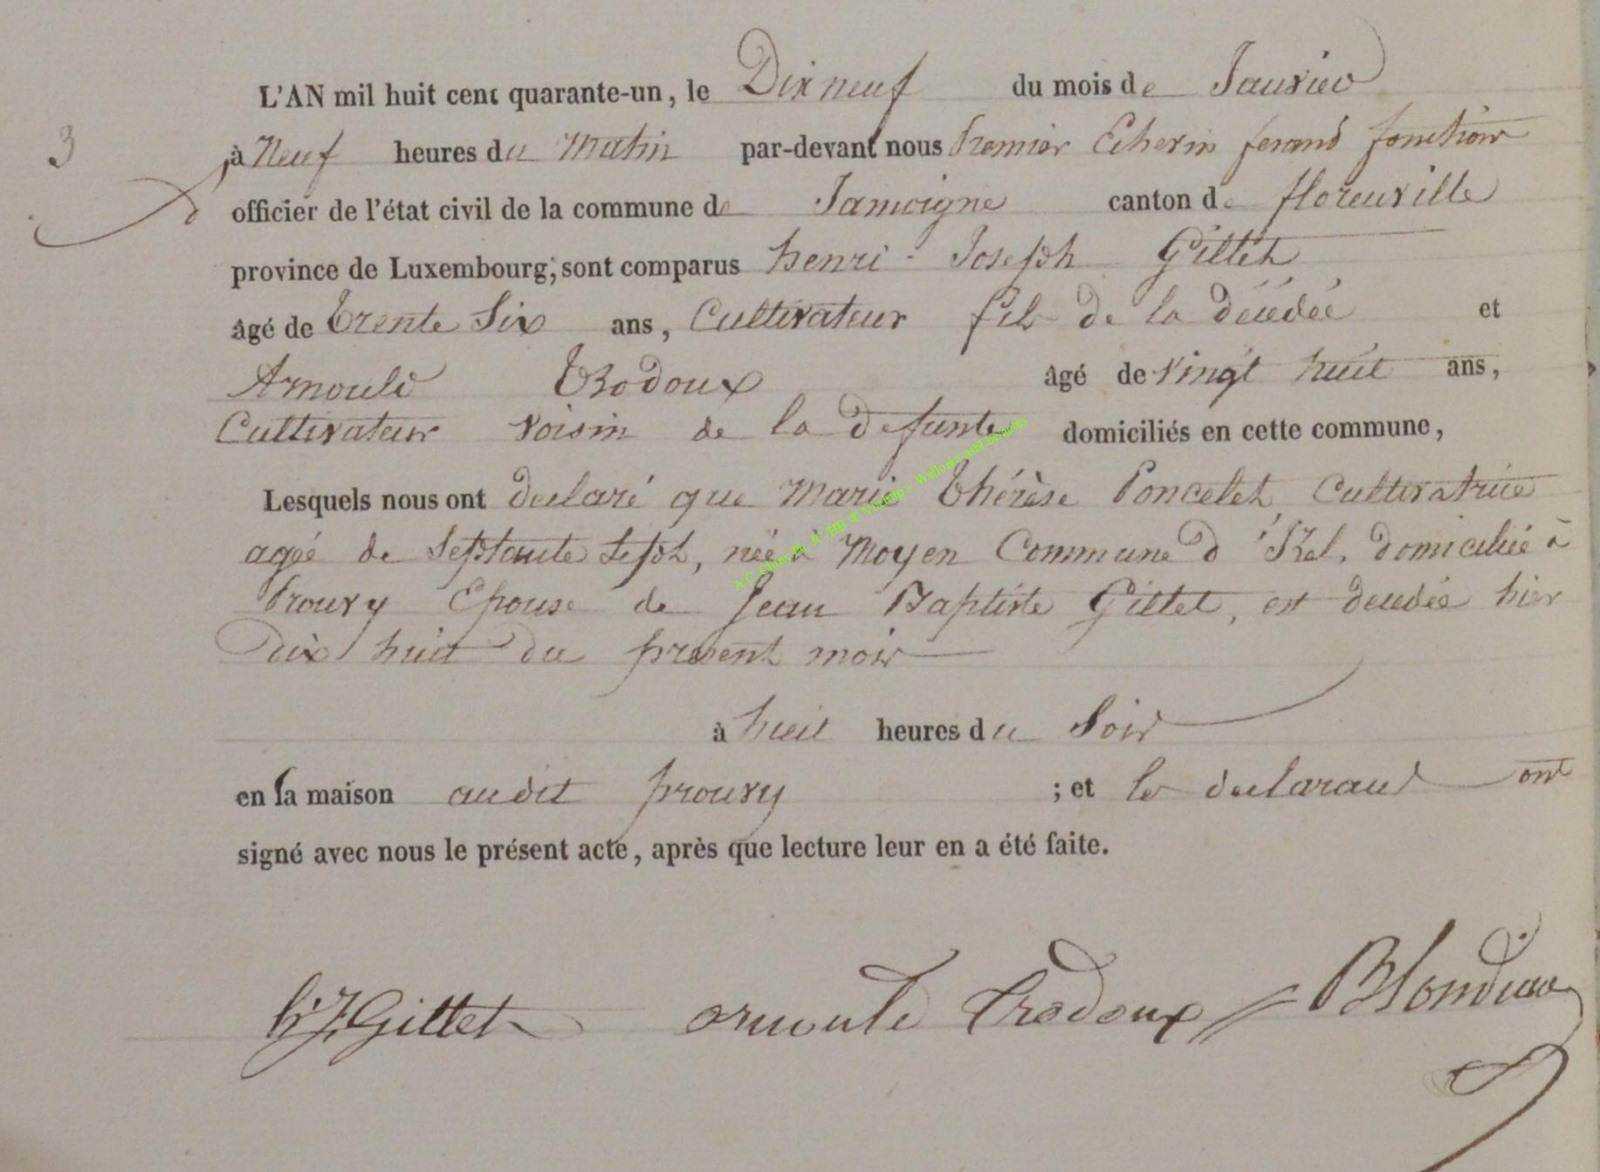 3
L'AN mil huit cent quarante-un, le Dix neuf du mois de Janvier
à Neuf heures du Matin par-devant nous Premier Echevin fesand fonction
officier de l'état civil de la commune de Jamoigne canton de florenville
province de Luxembourg, sont comparus henri - Joseph Gillet
âgé de trente Six ans, Cultivateur fils de la décédée et
Arnould Trodoux âgé de vingt huit ans,
Cultivateur voisin de la defunte domiciliés en cette commune,
Lesquels nous ont declaré que Marie thérèse Poncelet, Cultivatrice
agée de Septante Sept, née à Moyen Commune d'Izel, domiciliée à
Prouvy Epouse de Jean Baptiste Gillet, est decedée hier
Dix huit du present mois
à huit heures du Soir
en la maison audit prouvy ; et les declarant ont
signé avec nous le présent acte, après que lecture leur en a été faite.
h. J. Gillet arnould trodoux Blondiau